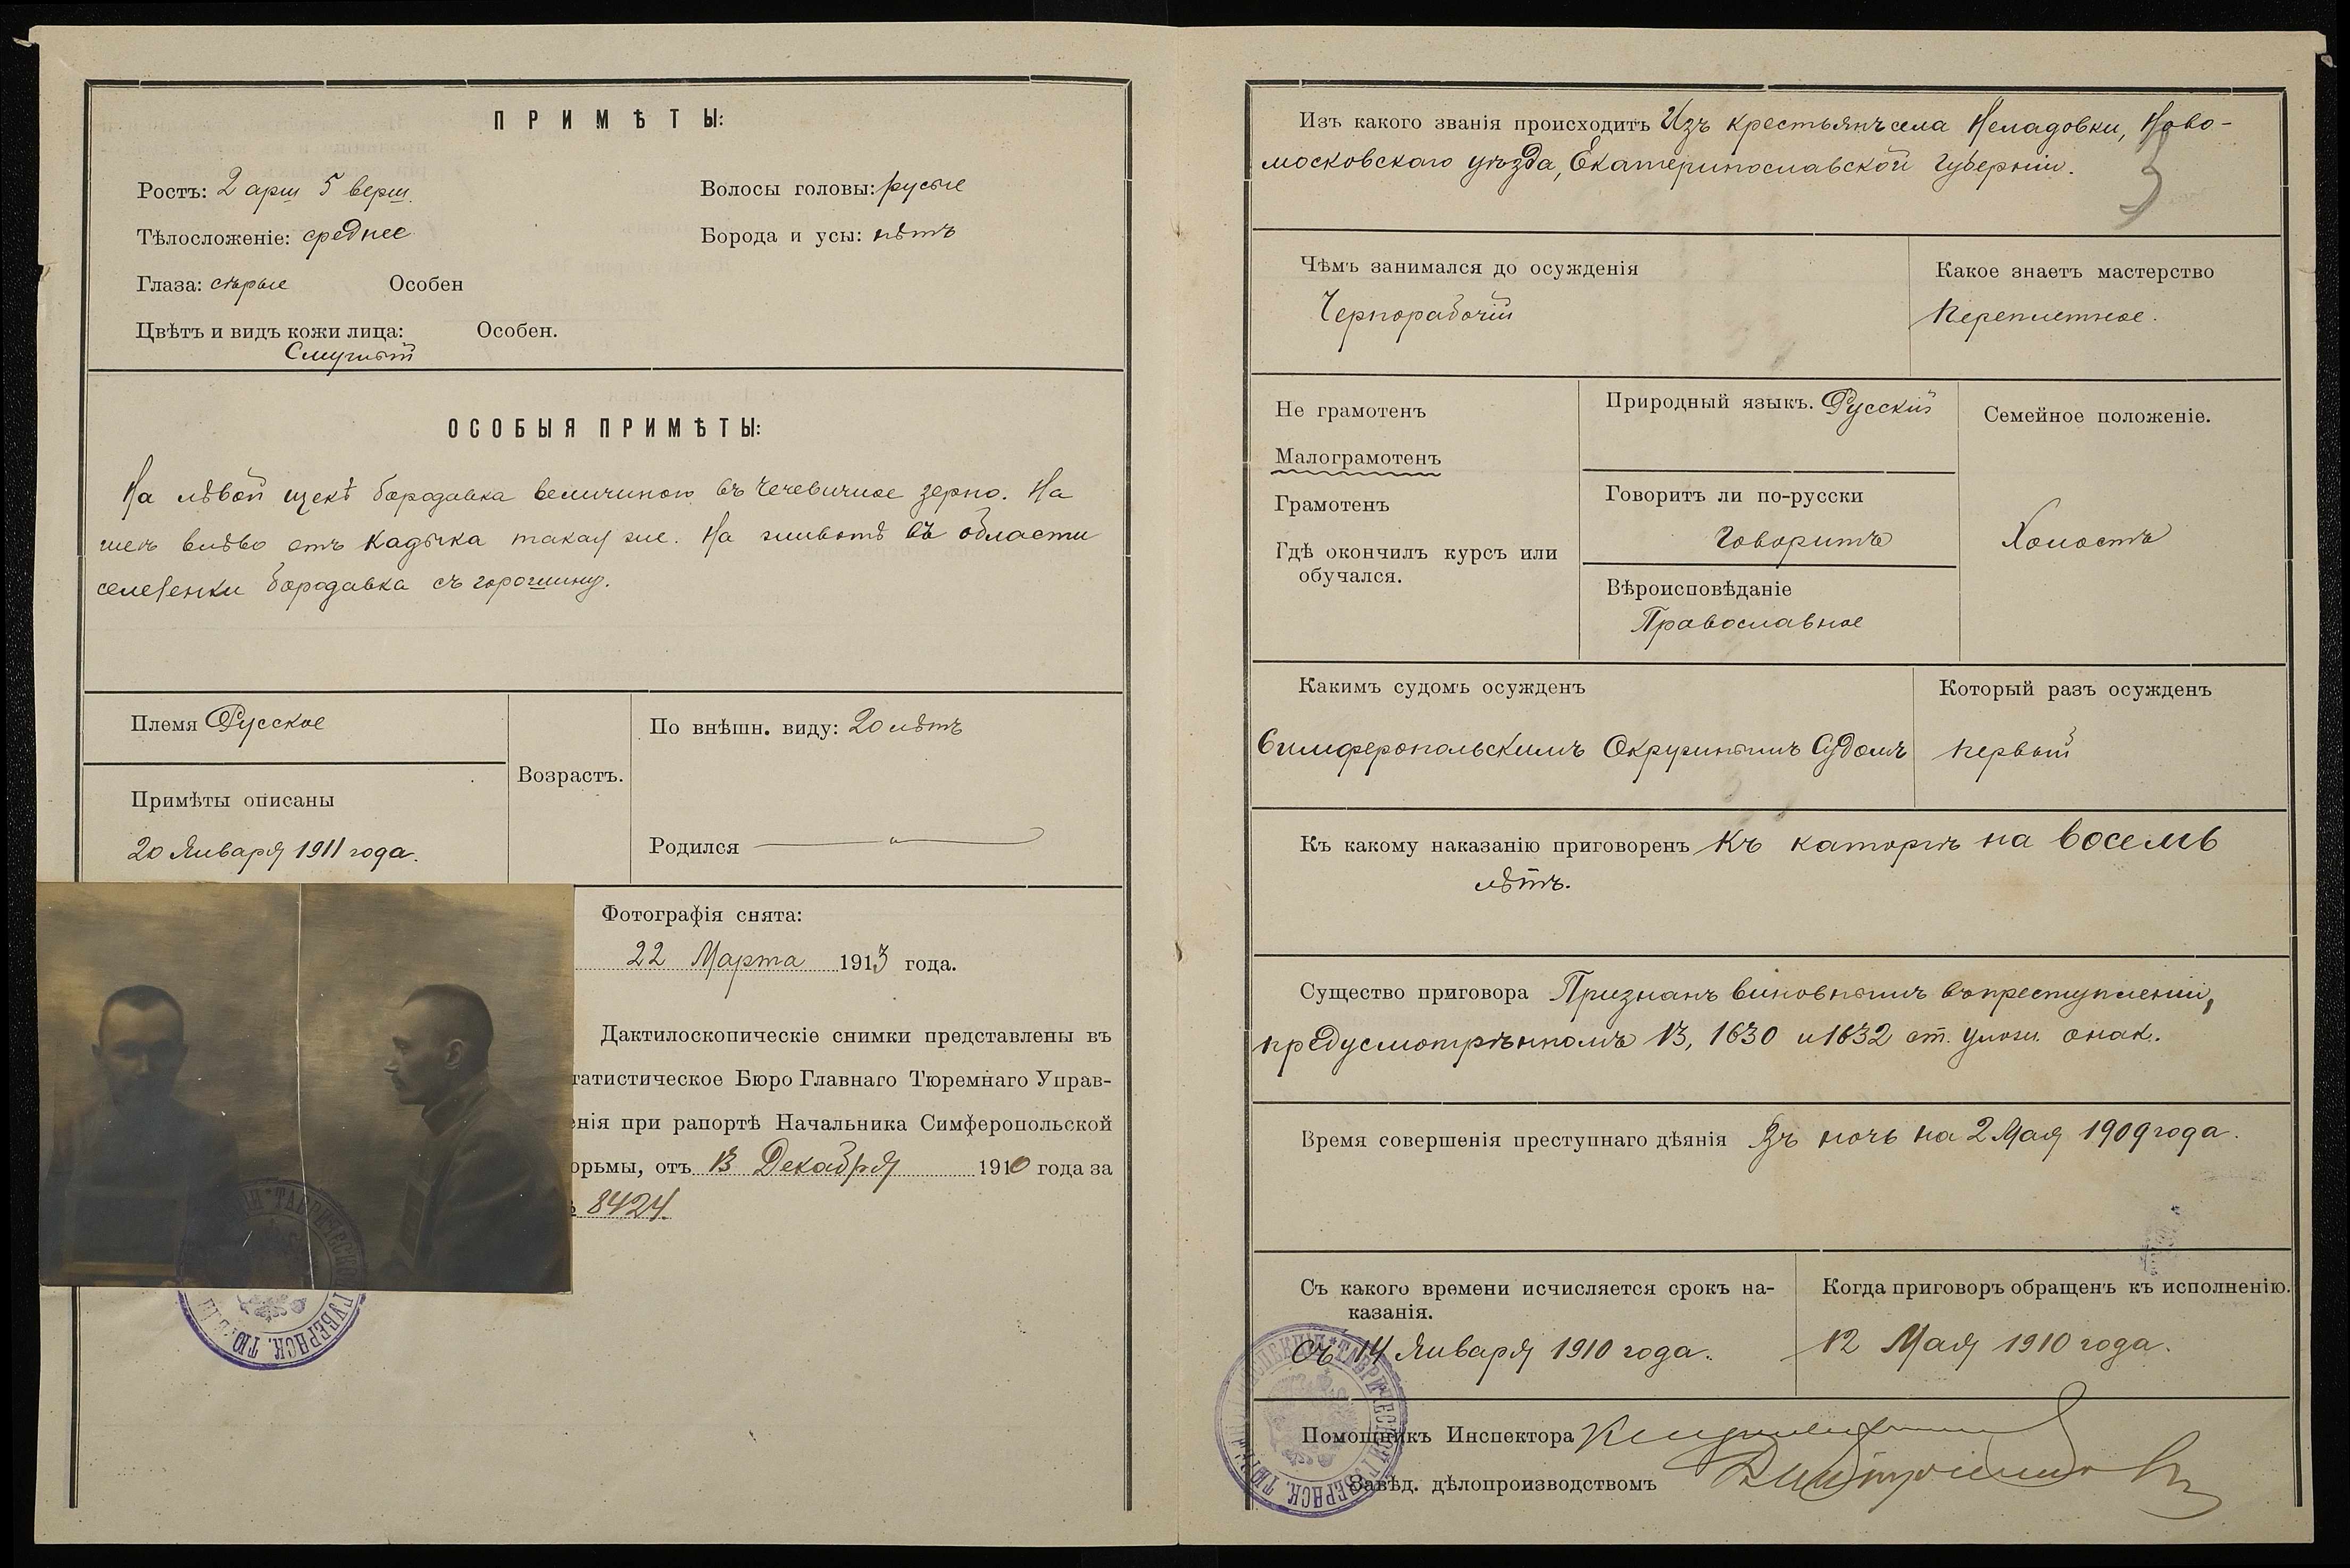 ПРИМѢТЫ:
Ростъ: 2 арш 5 верш.
Волосы головы: русые
Тѣлосложеніе: среднее
Борода и усы: нѣтъ
Глаза: сѣрые Особен
Цвѣтъ и видъ кожи лица: Особен.
Смуглый
ОСОБЫЯ ПРИМѢТЫ:
На лѣвой щекѣ бородавка величиною въ чечевичное зерно. На
шеѣ влѣво отъ кадыка такая же. На животѣ въ области
селезенки бородавка съ горошину.
Племя Русское
Примѣты описаны
20 Января 1911 года.
Возрастъ.
По внѣшн. виду: 20 лѣтъ
Родился
Фотографія снята:
22 Марта 1913 года.
Дактилоскопическіе снимки представлены въ
татистическое Бюро Главнаго Тюремнаго Управ-
енія при рапортѣ Начальника Симферопольской
орьмы, отъ 13 Декабря 1910 года за
8424.
Изъ какого званія происходитъ Изъ крестьянъ села Неладовки, Ново-
московскаго уѣзда, Екатеринославской губерніи.
3
Чѣмъ занимался до осужденія
Чернорабочій
Какое знаетъ мастерство
Переплетное.
Не грамотенъ
Малограмотенъ
Грамотенъ
Гдѣ окончилъ курсъ или
обучался.
Природный языкъ. Русскій
Говоритъ ли по-русски
Говоритъ
Вѣроисповѣданіе
Православное
Семейное положеніе.
Холостъ
Какимъ судомъ осужденъ
Симферопольскимъ Окружнымъ Судомъ
Который разъ осужденъ
первый
Къ какому наказанію приговоренъ Къ каторгѣ на восемь
лѣтъ.
Существо приговора Признанъ виновнымъ въ преступленіи,
предусмотрѣнномъ 13, 1630 и 1632 ст. улож. о нак.
Время совершенія преступнаго дѣянія Въ ночь на 2 Мая 1909 года.
Съ какого времени исчисляется срокъ на-
казанія.
Съ 14 Января 1910 года.
Когда приговоръ обращенъ къ исполненію.
12 Мая 1910 года.
Помощникъ Инспектора
Завѣд. дѣлопроизводствомъ